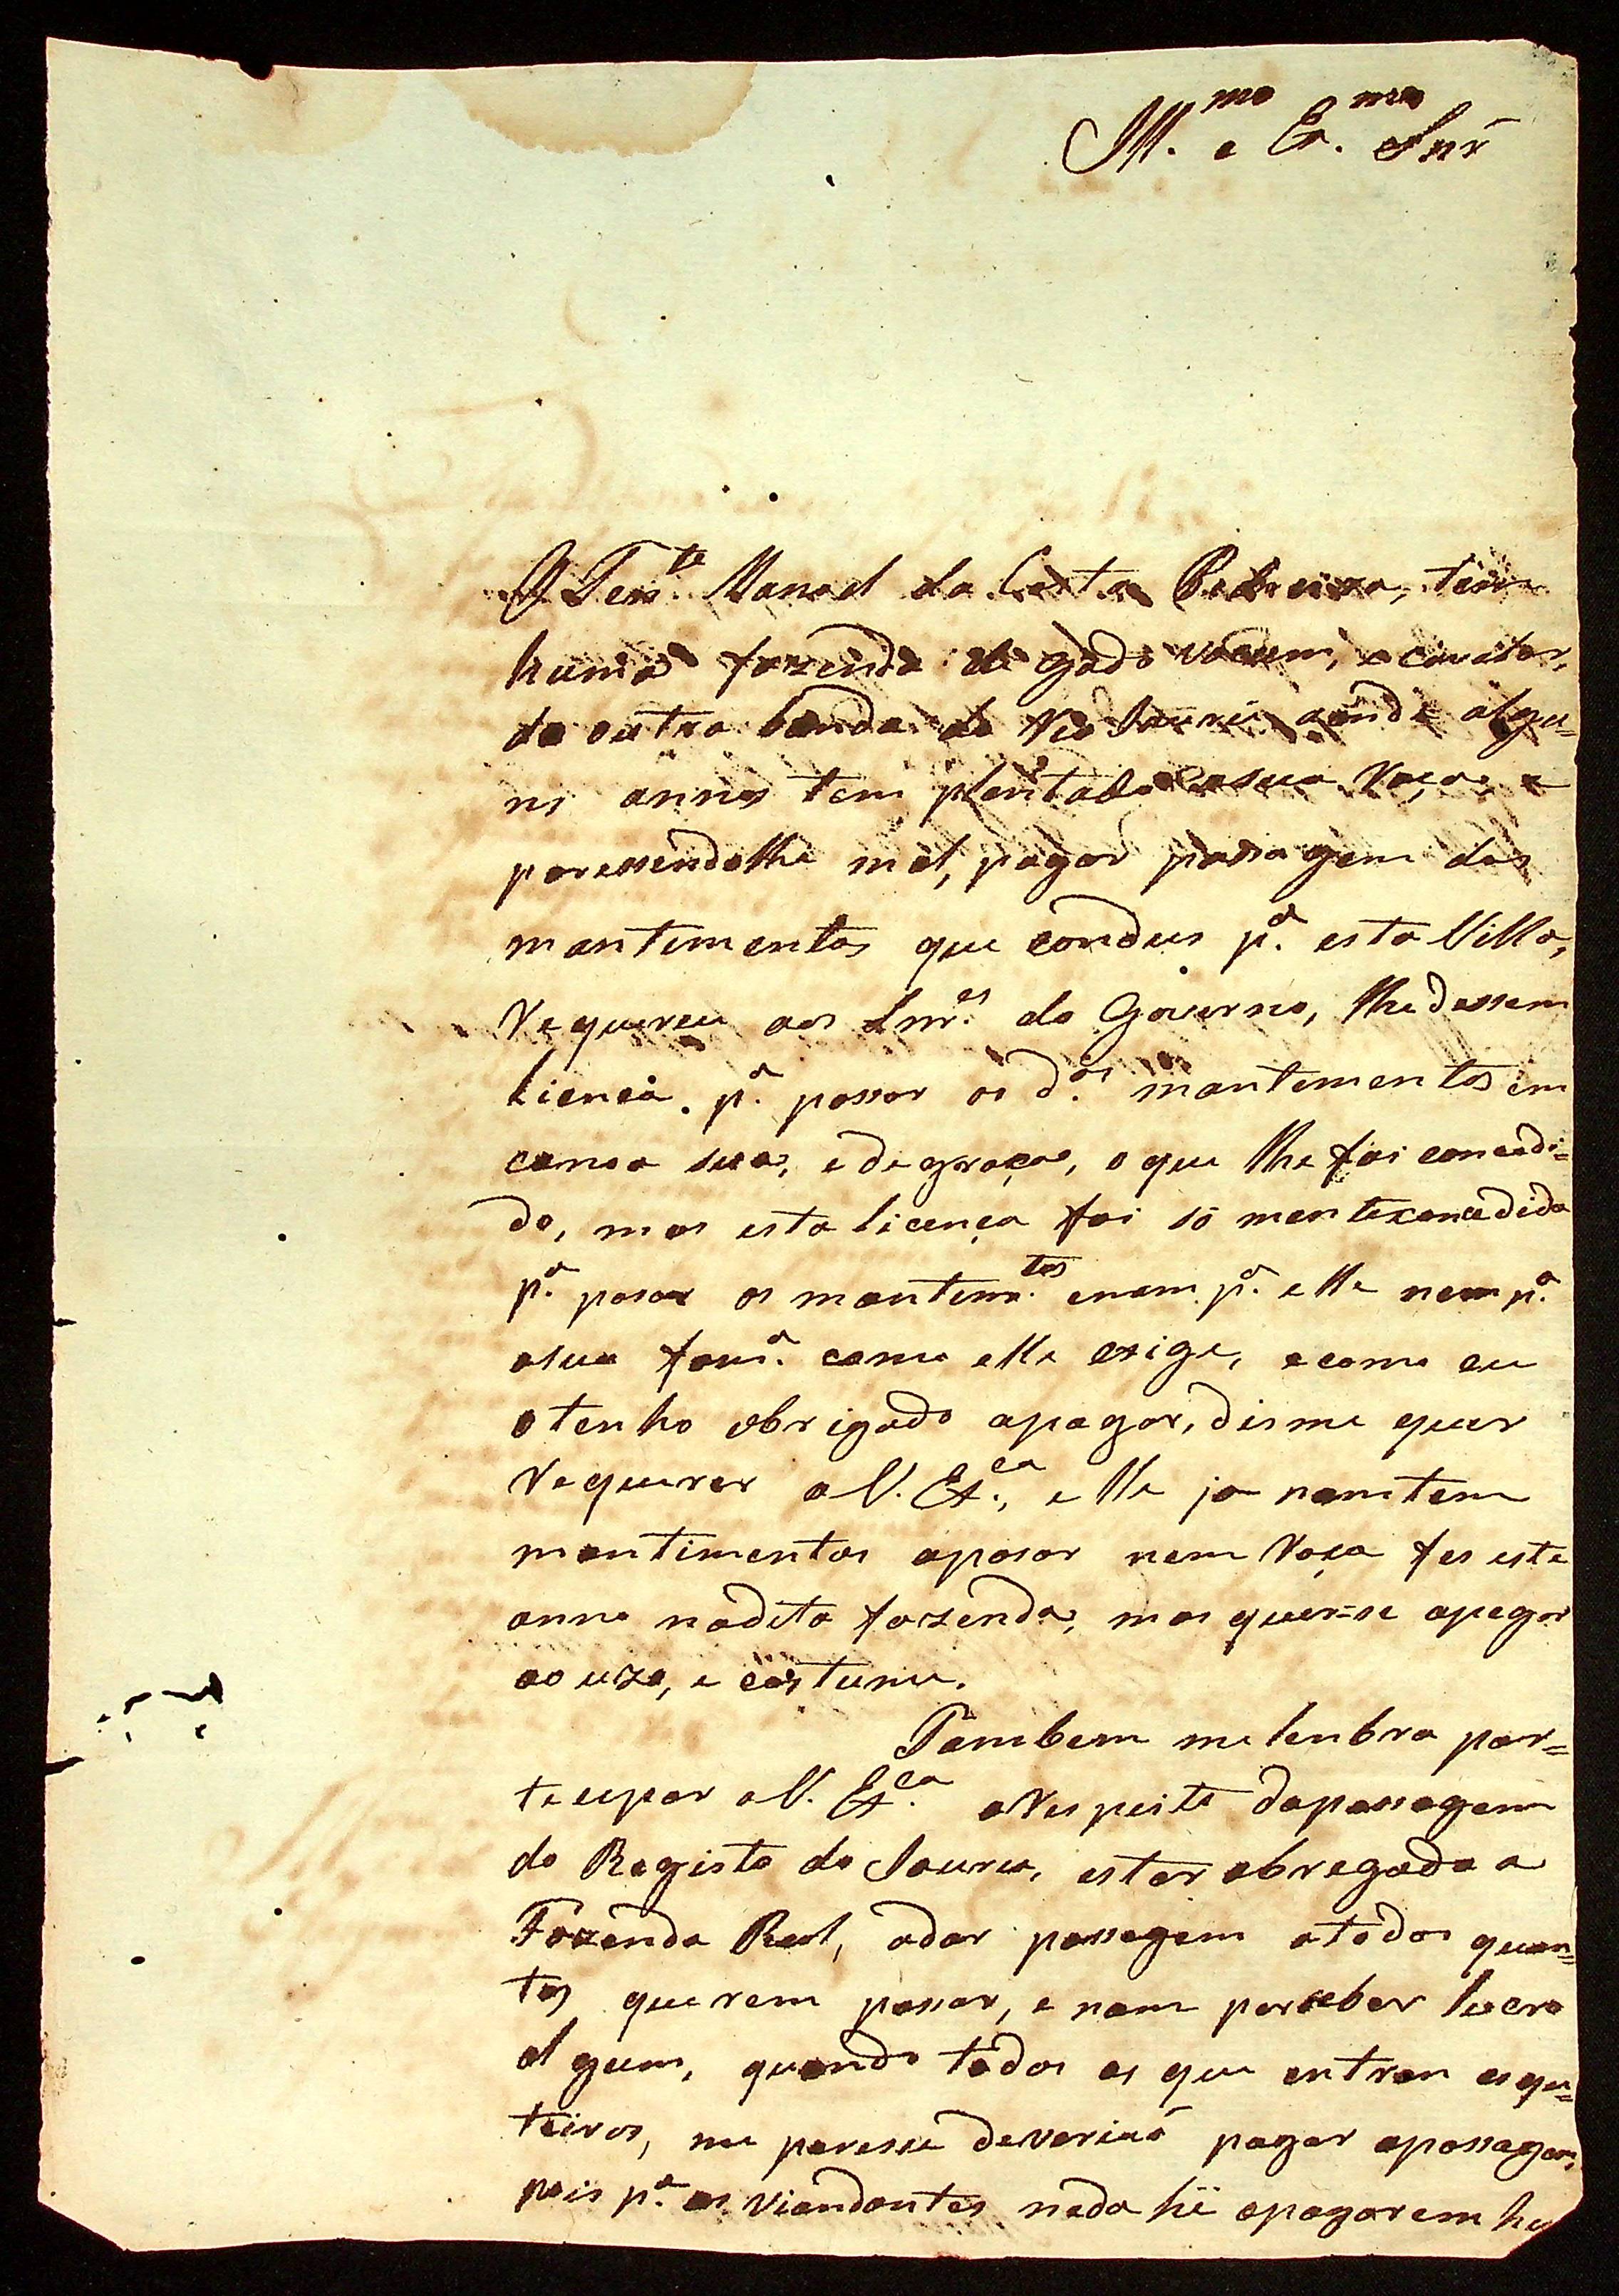 Ill.mo e Ex.mo Snr
O Ten.te Manoel da Costa Pedreira, tem
huma fazenda de gado vacum, e cavalar,
da outra banda do Rio Jauru aonde algu=
ns annos tem plantado asua Roça, e
paressendolhe mal, pagar passagem dos
mantimentos que condus p.a esta Villa,
Requereu aos Snr.es do Governo, lhe dessem
licença p.a passar os d.os mantimentos em
canoa sua, e de graça, o que lhe foi concedi=
do, mas esta licença foi só mente concedida
p.a pasar os mantim.tos enam p.a elle nem p.a
asua fam.a como elle exige, ecomo eu
otenho obrigado apagar, disme quer
Requerer aV. Ex.ca, elle ja nam tem
mantimentos apasar nem Roça fes este
anno nadita fazenda, mas quer=se apegar
ao uzo, e costume.
Tambem me lenbra par=
tecipar aV. Ex.ca aRespeito dapassagem
do Registo do Jauru, estar obregada a
Fazenda Real, adar passagem atodos quan=
tos querem passar, e nam perseber lucro
algum, quando todos os que entran
teiros, me paresse deveriaõ pagar apassagem,
pois p.a os viandantes nada hé apagarem hu